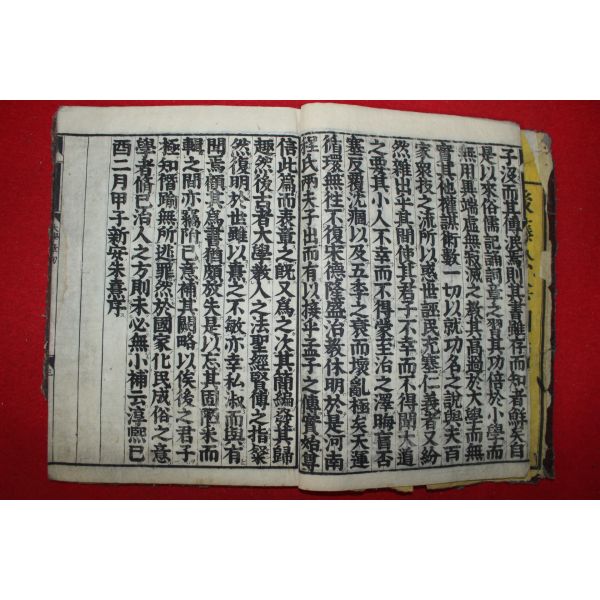 子沒而其傳泯焉則其書雖存而知者鮮矣自
是以來俗儒記誦詞章之習其功倍於小學而
無用異端虛無寂滅之教其高過於大學而無
實其他權謀術數一切以就功名之說與夫百
家衆技之流所以惑世誣民充塞仁義者又紛
然雜出乎其間使其君子不幸而不得聞大道
之要其小人不幸而不得蒙至治之澤晦盲否
塞反覆沈痼以及五季之衰而壞亂極矣天運
循環無往不復宋德隆盛治教休明於是河南
程氏兩夫子出而有以接乎孟子之傳實始尊
信此篇而表章之旣又爲之次其簡編發其歸
趣然後古者大學教人之法聖經賢傳之指粲
然復明於世雖以熹之不敏亦幸私淑而與有
聞焉顧其爲書猶頗放失是以忘其固陋采而
輯之間亦竊附己意補其闕略以俟後之君子
極知僭踰無所逃罪然於國家化民成俗之意
學者脩己治人之方則未必無小補云淳熙己
酉二月甲子新安朱熹序